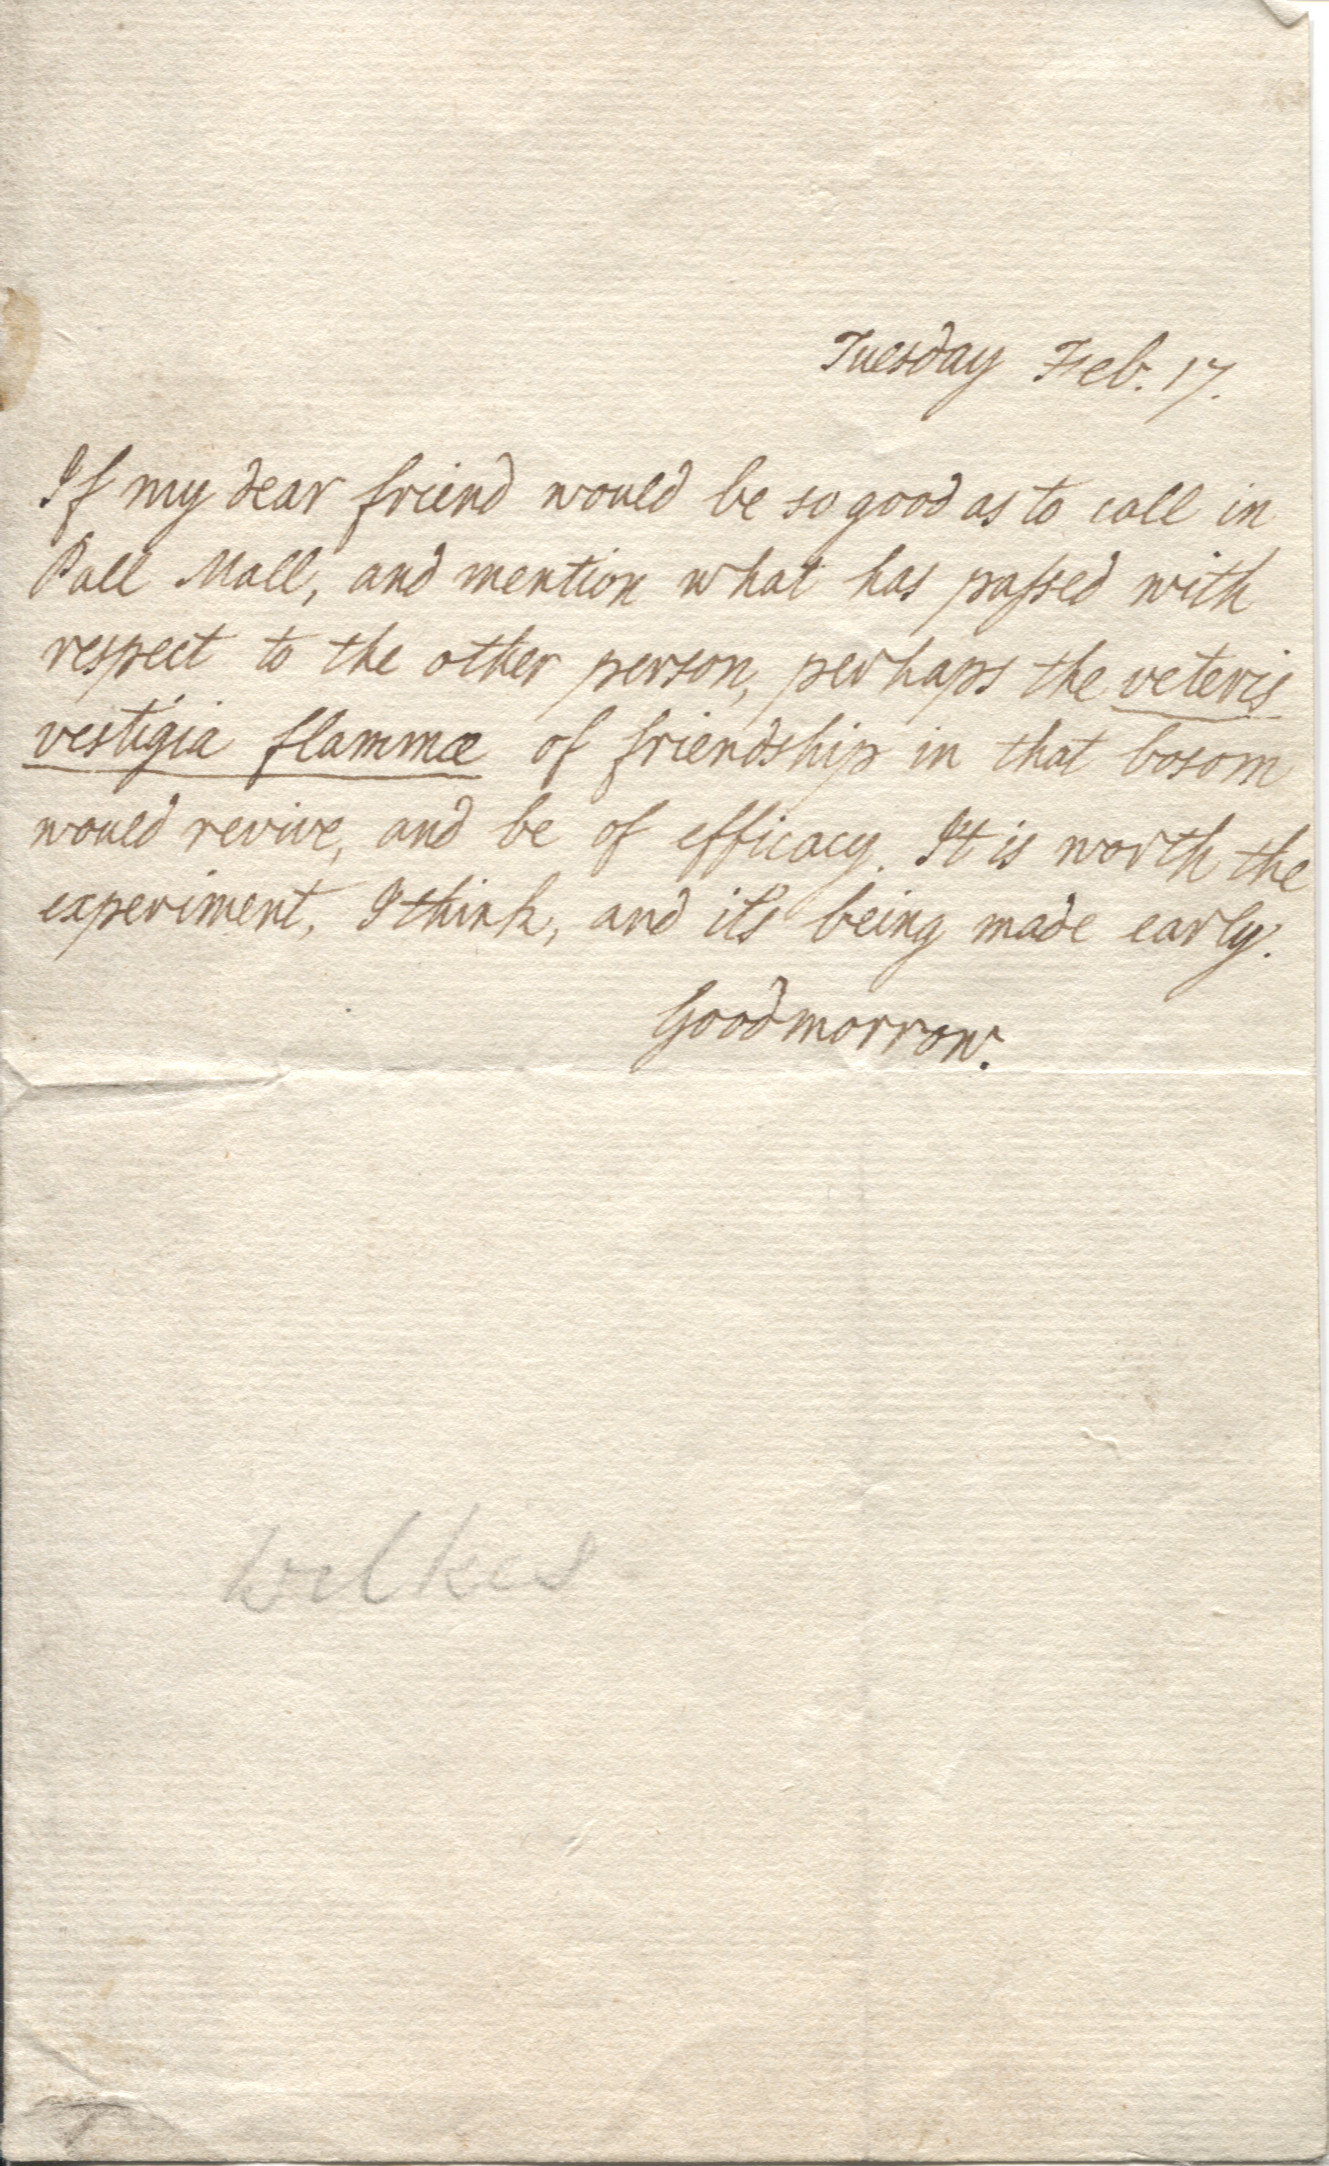 Tuesday Feb. 17.
If my dear friend would be so good as to call in
Pall Mall, and mention what has paſsed with
respect to the other person, perhaps the veteris
vestigia flammæ of friendship in that bosom
would revive, and be of efficacy. It is worth the
experiment, I think, and it's being made early.
Goodmorrow.
Wilkes